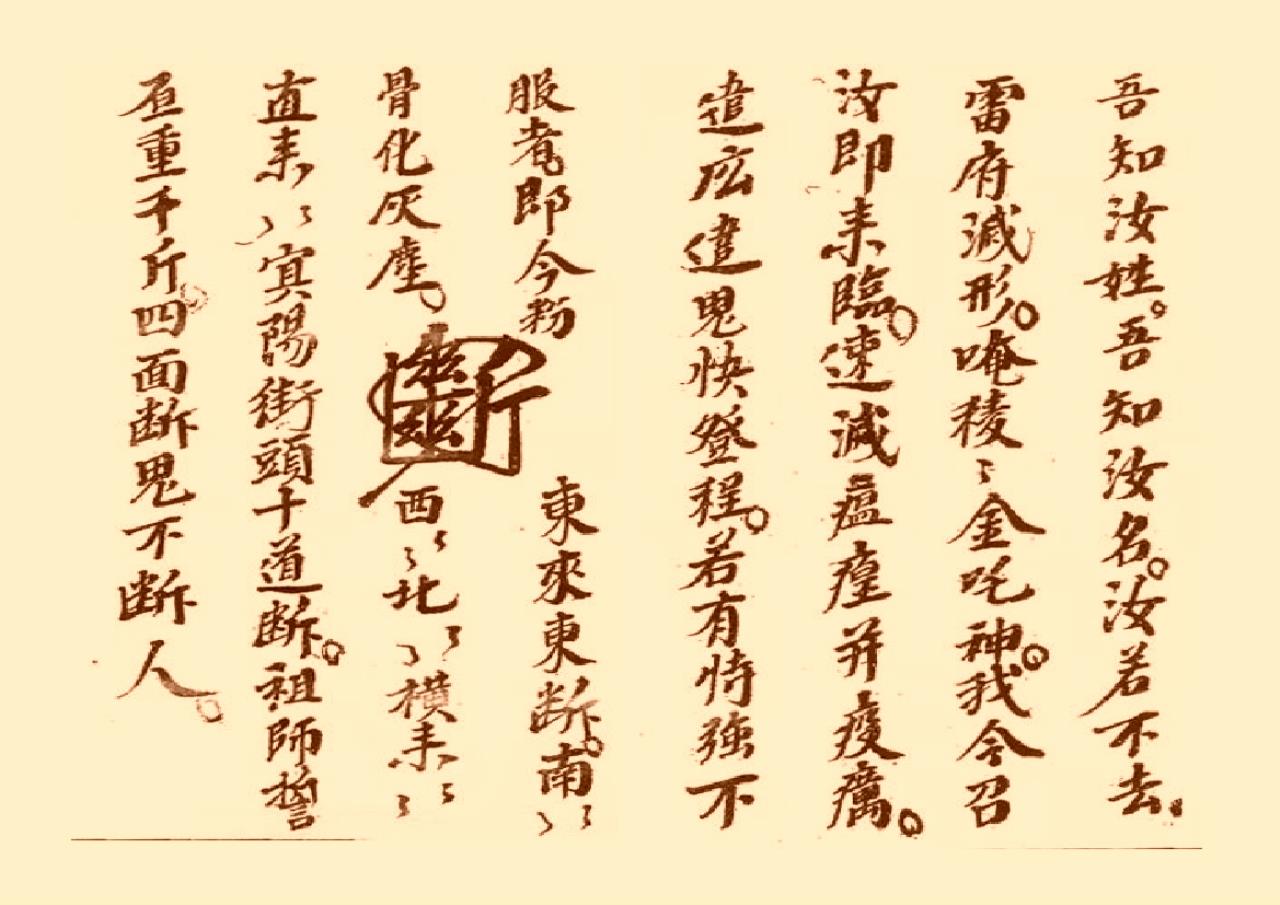 吾知汝姓。吾知汝名。汝若不去。
雷府滅形。唵稜〻金吒神。我今召
汝即耒臨。速滅瘟㾮并疫癘。
遣庅遣鬼快登程。若有恃強不
服者。即今粉
骨化灰塵。
斷
東來東断。南〻
西〻北〻横耒〻
直耒〻冥陽街頭十道断。祖師誓
重千斤。四面断鬼不断人。